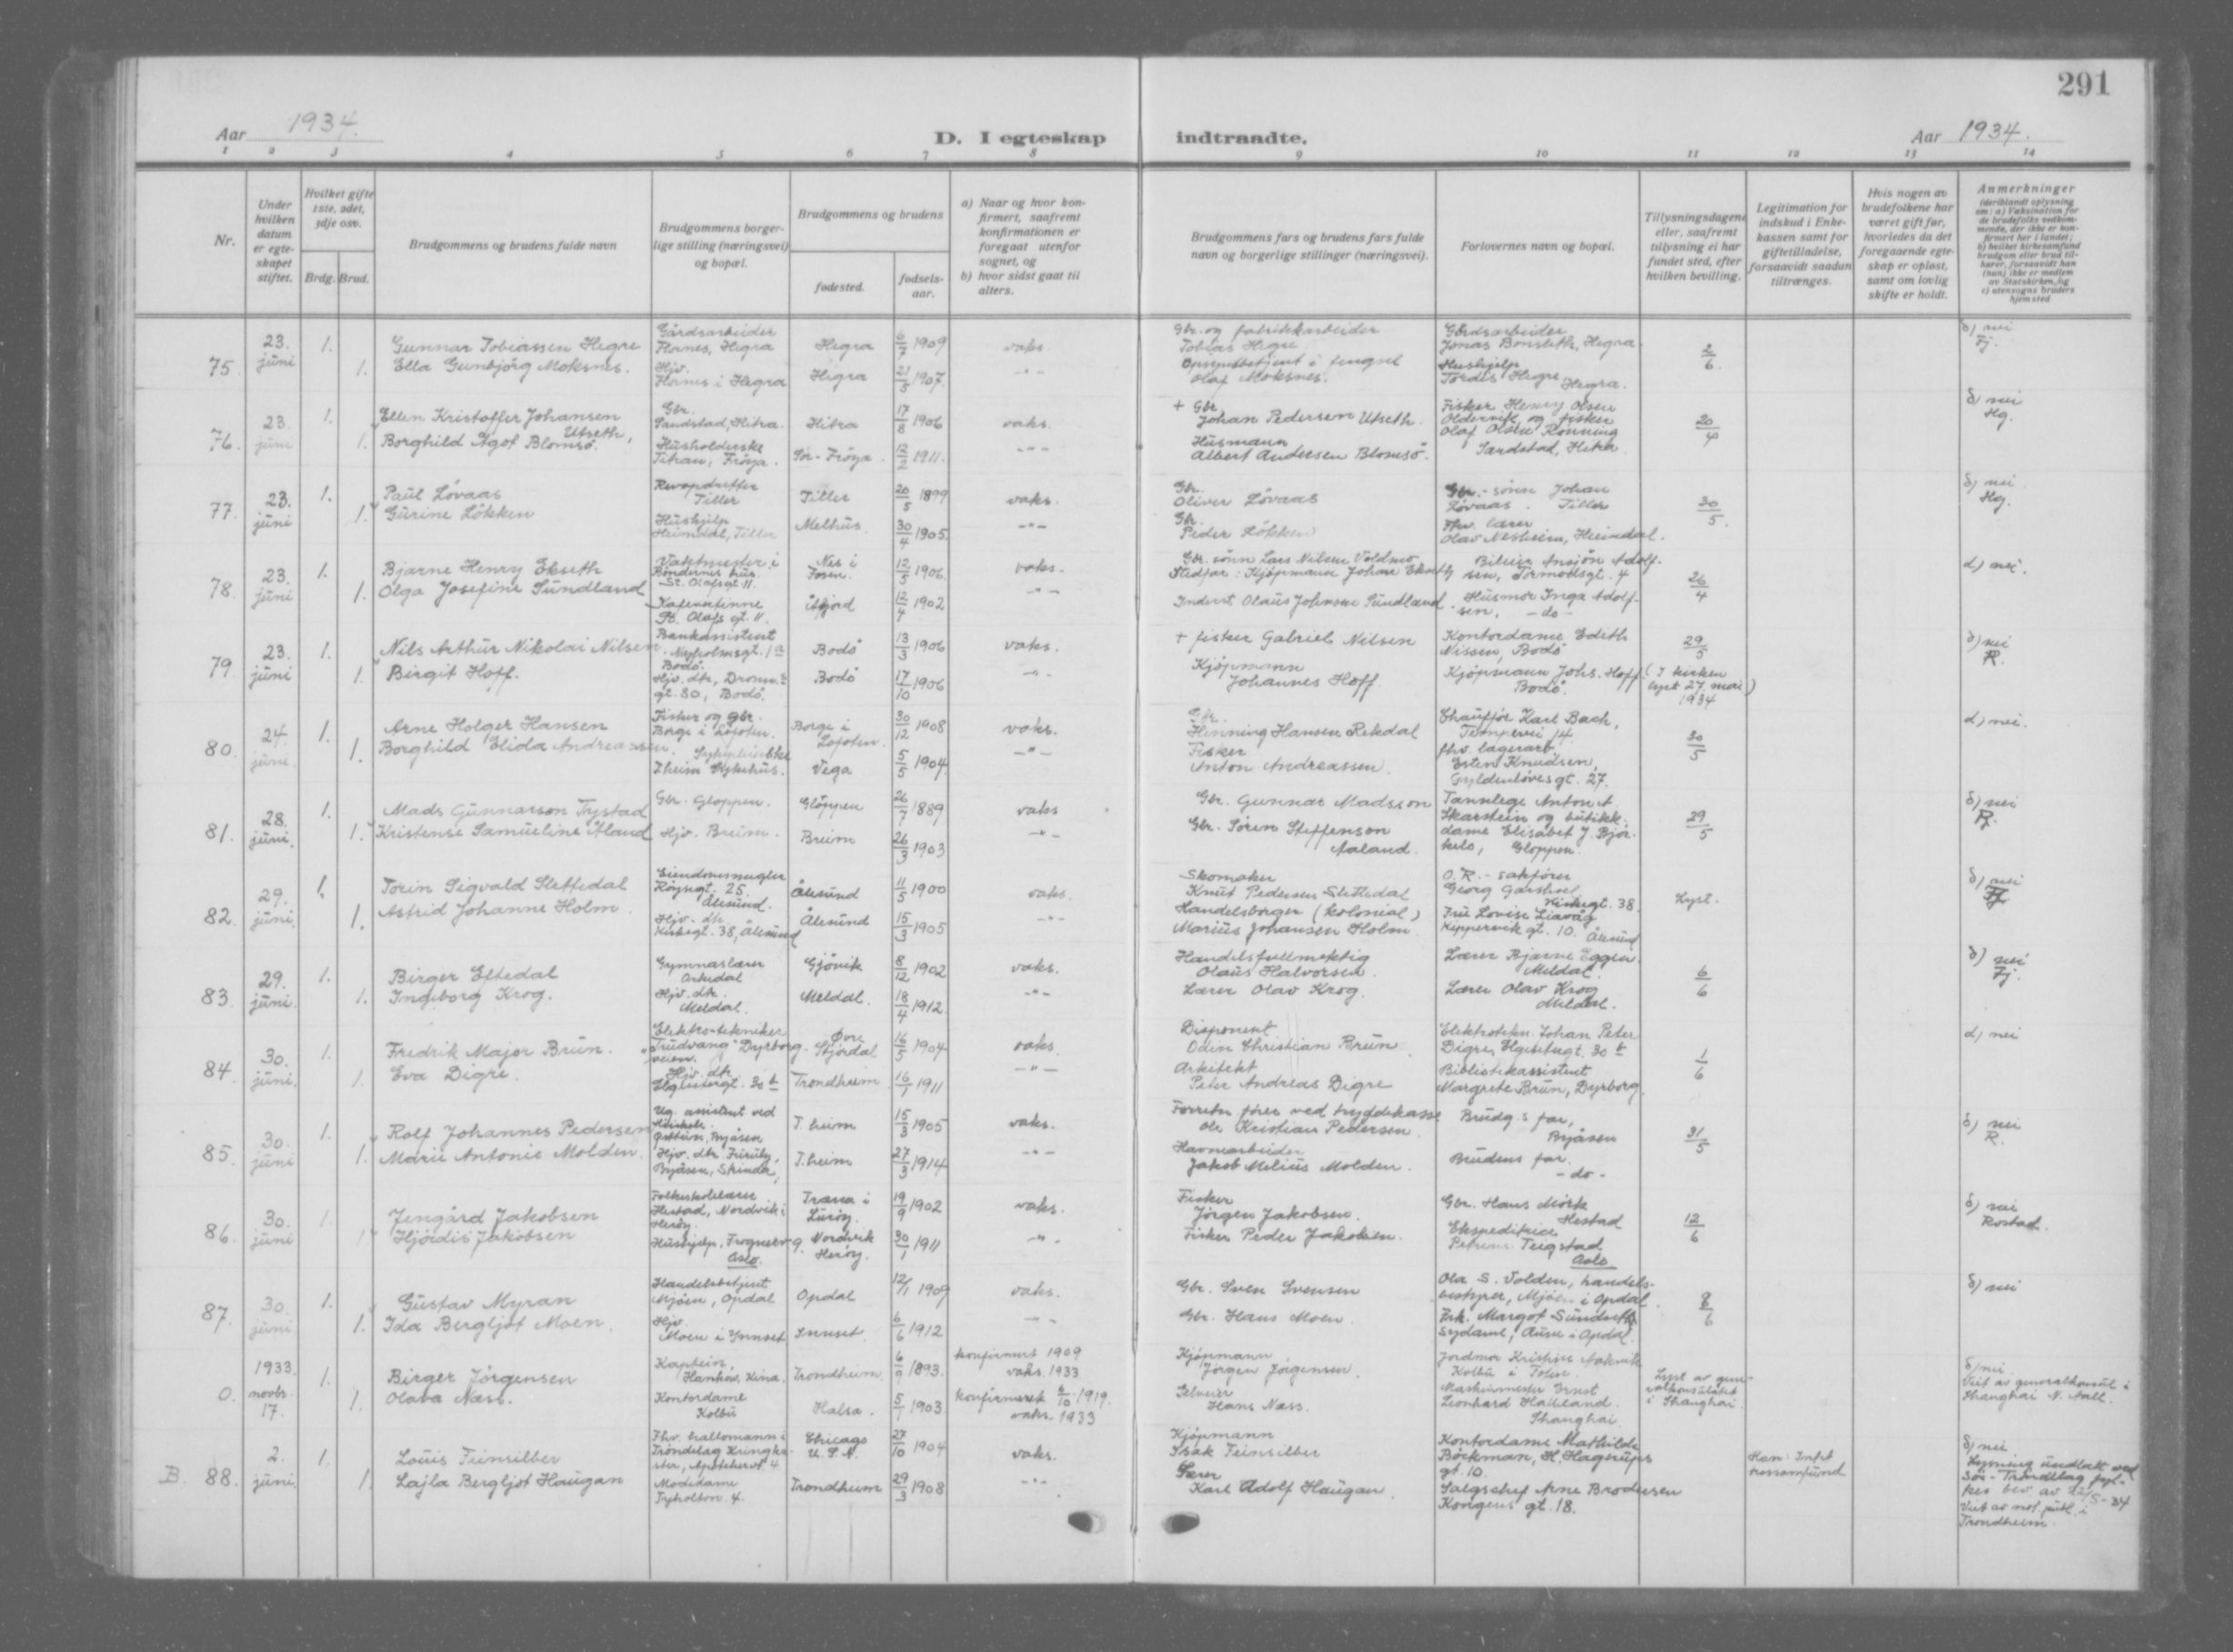 291
Aar 1934.
D. I egteskap indtraadte.
Aar 1934.
1 2 3 4 5 6 7 8 9 10 11 12 13 14
Nr.
Under hvilken datum er egteskapet stiftet.
Hvilket gifte 1ste, 2det, 3dje osv.
Brdg. Brud.
Brudgommens og brudens fulde navn
Brudgommens borgerlige stilling (næringsvei) og bopæl.
Brudgommens og brudens
fødested.
fødselsaar.
a) Naar og hvor konfirmert, saafremt konfirmationen er foregaat utenfor sognet, og
b) hvor sidst gaat til alters.
Brudgommens fars og brudens fars fulde navn og borgerlige stillinger (næringsvei).
Forlovernes navn og bopæl.
Tillysningsdagene eller, saafremt tillysning ei har fundet sted, efter hvilken bevilling.
Legitimation for indskud i Enkekassen samt for giftetilladelse, forsaavidt saadan tiltrænges.
Hvis nogen av brudefolkene har været gift før, hvorledes da det foregaaende egteskap er opløst, samt om lovlig skifte er holdt.
Anmerkninger (deriblandt oplysning om: a) Vaksination for de brudefolks vedkommende, der ikke er konfirmert her i landet; b) hvilket kirkesamfund brudgom eller brud tilhører, forsaavidt han (hun) ikke er medlem av Statskirken, og c) utensogns bruders hjemsted
75. 23. juni 1. Gunnar Tobiassen Hegre Gårdsarbeider Hegra Hegra 6/7 1909 vaks. Gbr. og fabrikkarbeider Tobias Hegre Gårdsarbeider Jonas Bonseth, Hegra. 2/6. nei Fj.
1. Ella Gunbjörg Moksnes. Hjv. i Hegra Hegra 21/5 1907. -"- i fengsel Olaf Moksnes. Hushjelp Tordis Hegre Hegra.
76. 23. juni 1. Ellen Kristoffer Johansen Utseth, Gbr. Sandstad, Hitra. Hitra 17/8 1906 vaks. + Gbr. Johan Pedersen Utseth. Fisker Henry Olsen og fisker nei Hg.
1. Borghild Agot Blomsö. Husholderske Titran, Fröya. Sör-Fröya. 12/2 1911. -"- Husmann Albert Andersen Blomsö. Olaf Olsen Rönning Sandstad, Hitra.
77. 23. juni 1. Paul Lövaas Tiller Tiller 20/5 1899 vaks. Gbr. Oliver Lövaas Gbr.-sönn Johan Lövaas. Tiller 30/5. nei Hg.
1. Gurine Lökken Hushjelp Heimdal, Tiller Melhus. 30/4 1905. -"- Gbr. Peder Lökken Fhv. lærer Olav Nesheim, Heimdal.
78. 23. juni 1. Bjarne Henry Ekseth Vaktmester i Böndernes hus. St. Olafsgt. 11. Nes i Fosen. 12/5 1906. vaks. Gbr. sönn Lars Nilsen Stedfar: Kjöpmann Johan Ekseth Adolfsen, Tormodsgt. 4 26/4 nei.
1. Olga Josefine Sundland St. Olafs gt. 11. 12/4 1902 -"- Inderst Olaus Johnsen Sundland. Husmor Inga Adolfsen, -do-
79. 23. juni 1. Nils Arthur Nikolai Nilsen Bankassistent Bodö. Bodö 13/3 1906 vaks. + fisker Gabriel Nilsen Kontordame Edith Nissen, Bodö 29/5 nei R.
1. Birgit Hoff. Hjv. dtr., Dronn. gt. 80, Bodö. Bodö 17/10 1906 -"- Kjöpmann Johannes Hoff. Kjöpmann Johs. Hoff Bodö. (I kirken lyst 27. mai 1934)
80. 24. juni. 1. Arne Holger Hansen Fisker og gbr. Borge i Lofoten. Borge i Lofoten. 30/12 1908 vaks. Gbr. Henning Hansen Rekdal Chauffør Karl Bach, Tempevei 14. 30/5 nei.
1. Borghild Elida Andreassen. T.heim Sykehus. Vega 5/5 1904. -"- Fisker Anton Andreassen. fhv. lagerarb. Esten Knudsen, Gyldenlövesgt. 27.
81. 28. juni. 1. Mads Gunnarson Tystad Gbr. Gloppen. Gloppen 26/7 1889 vaks Gbr. Gunnar Madsson Tannlege Anton A. Skarstein og butikk- 29/5 nei R.
1. Kristense Samueline Åland Hjv. Breim. Breim 26/3 1903 -"- Gbr. Sören Steffenson Aaland. dame Elisabet J. Gloppen.
82. 29. juni. 1. Torin Sigvald Slettedal Eiendomsmegler 25. Ålesund. Ålesund 11/5 1900 vaks. Skomaker Knut Pedersen Slettedal O.R.-sakförer Georg Kirkegt. 38. Lyst. nei
1. Astrid Johanne Holm. Hjv. dtr. Kirkegt. 38, Ålesund Ålesund 15/3 1905 -"- Handelsborger (kolonial) Marius Johansen Holm. Fru Lovise Liavåg Kippervik gt. 10. Ålesund
83. 29. juni. 1. Birger Eftedal Gymnaslærer Orkedal Gjövik 8/12 1902 vaks. Handelsfullmektig Olaus Halvorsen. Lærer Bjarne Eggen. Meldal. 6/6 nei Fj.
1. Ingeborg Krog. Hjv. dtr. Meldal. Meldal. 18/4 1912. -"- Lærer Olav Krog. Lærer Olav Krog Meldal.
84. 30. juni. 1. Fredrik Major Brun. Elektro-tekniker "Trudvang" Dyrborgveien. Øvre Stjördal 16/5 1904 vaks. Disponent Odin Christian Brun Johan Peter Digre, 30 b 1/6 nei
1. Eva Digre. Hjv. dtr. 30 b Trondheim. 16/1 1911 -"- Arkitekt Peter Andreas Digre Bibliotekassistent Margrete Brun, Dyrborg.
85. 30. juni 1. Rolf Johannes Pedersen assistent ved Byåsen T.heim 15/3 1905 vaks. ved trygdekasse Ole Kristian Pedersen. Brudg.s far, Byåsen 31/5 nei R.
1. Marie Antonie Molden. Hjv. dtr. Byåsen, Strinda, T.heim 27/3 1914 -"- Havnearbeider Jakob Melius Molden. Brudens far. -do-
86. 30. juni 1. Jengård Jakobsen Folkeskolelærer Hestad, Nordvik i Heröy. Træna i Luröy. 19/9 1902 vaks. Fisker Jörgen Jakobsen. Gbr. Hans Mörk Hestad 12/6 nei Rostad.
1. Hjördis Jakobsen Hushjelp, Oslo. Nordvik Heröy. 30/1 1911 -"- Fisker Peder Jakobsen. Ekspeditrice Teigstad Oslo
87. 30. juni 1. Gustav Myran Handelsbetjent Mjöen, Opdal Opdal 12/1 1909 vaks. Gbr. Sven Svensen Ola S. Tolden, handelsbestyrer, Mjöen i Opdal. 8/6 nei
1. Ida Bergljot Moen. Hjv. Moen i Innset Innset. 6/6 1912 -"- Gbr. Hans Moen. Frk. Margot Sundseth Sydame, Aune i Opdal.
0. 1933. novbr. 17. 1. Birger Jörgensen Kaptein, Hankow, Kina. Trondheim. 6/9 1893. konfirmert 1909 vaks. 1933 Kjöpmann Jörgen Jörgensen. Jordmor Kristine Kolbu i Toten. Lyst av generalkonsulatet i Shanghai. nei. Viet av generalkonsul i Shanghai N. Aall.
1. Olava Næss. Kontordame Kolbu Halsa. 5/1 1903 konfirmert 6/10 1919. vaks. 1933 Hans Næss. Maskinmester Ernst Leonhard Shanghai.
B. 88. 2. juni. 1. Louis Feinsilber Fhv. hallomann i Tröndelag Kringkaster, 4 Chicago U.S.A. 27/10 1904 vaks. Kjöpmann Isak Feinsilber Kontordame Mathilde Böckman, H. Hagerups gt. 10. Han: trossamfund nei
1. Lajla Bergljot Haugan Modedame 4. Trondheim 29/3 1908 -"- Lærer Karl Adolf Haugan. Salgschef Arne Brodersen Kongens gt. 18. Lysning undlatt ved Sör-Tröndelag fylkes bev. av 22/5-34 Viet av not. publ. i Trondheim.